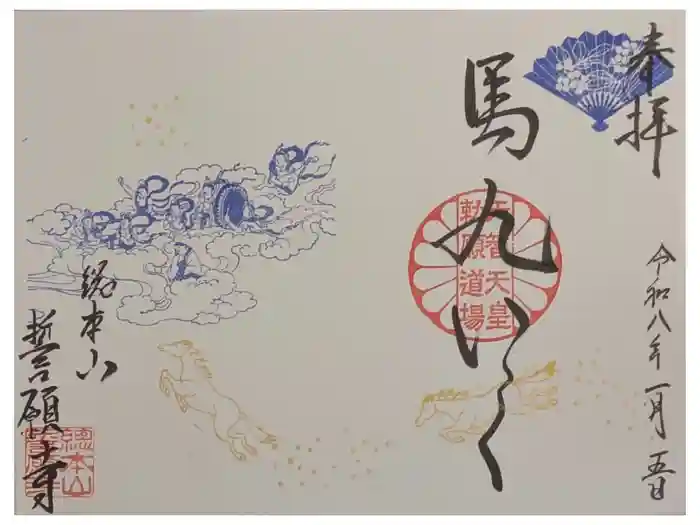 奉拝
令和八年一月五日
馬九いく
天智天皇
勅願道場
総本山
誓願寺
總本山
誓願寺